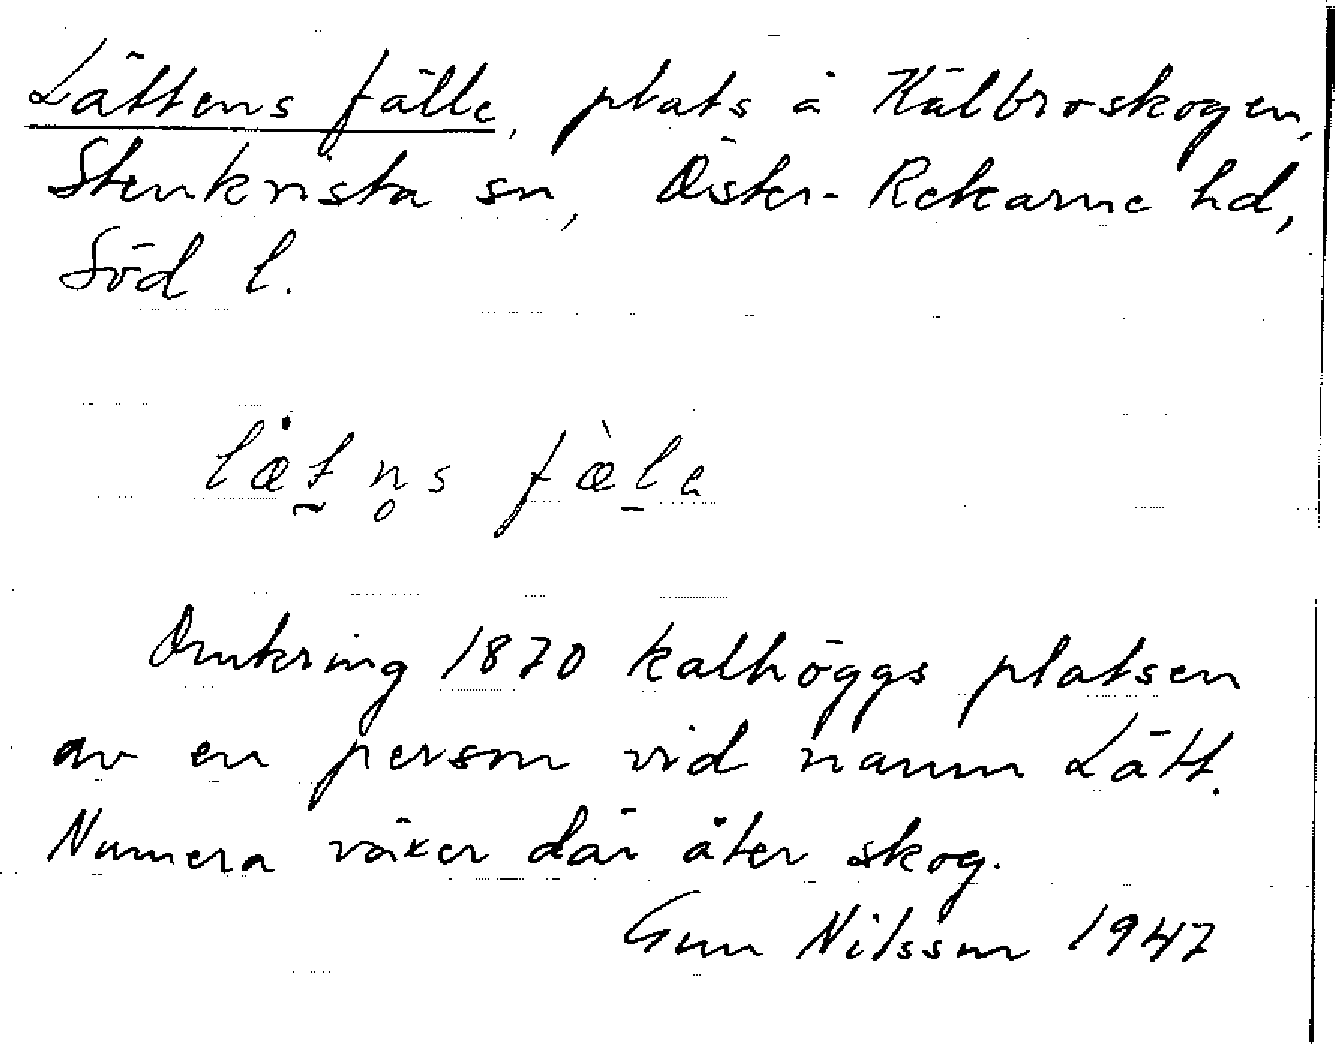 Lättens fälle, plats å Kälbroskogen,
Stenkvista sn, Öster-Rekarne hd,
Söd l.
læt̰n̥s fæ̀l̠e
Omkring 1870 kalhöggs platsen
av en person vid namn Lätt.
Numera växer där åter skog.
Gun Nilsson 1947